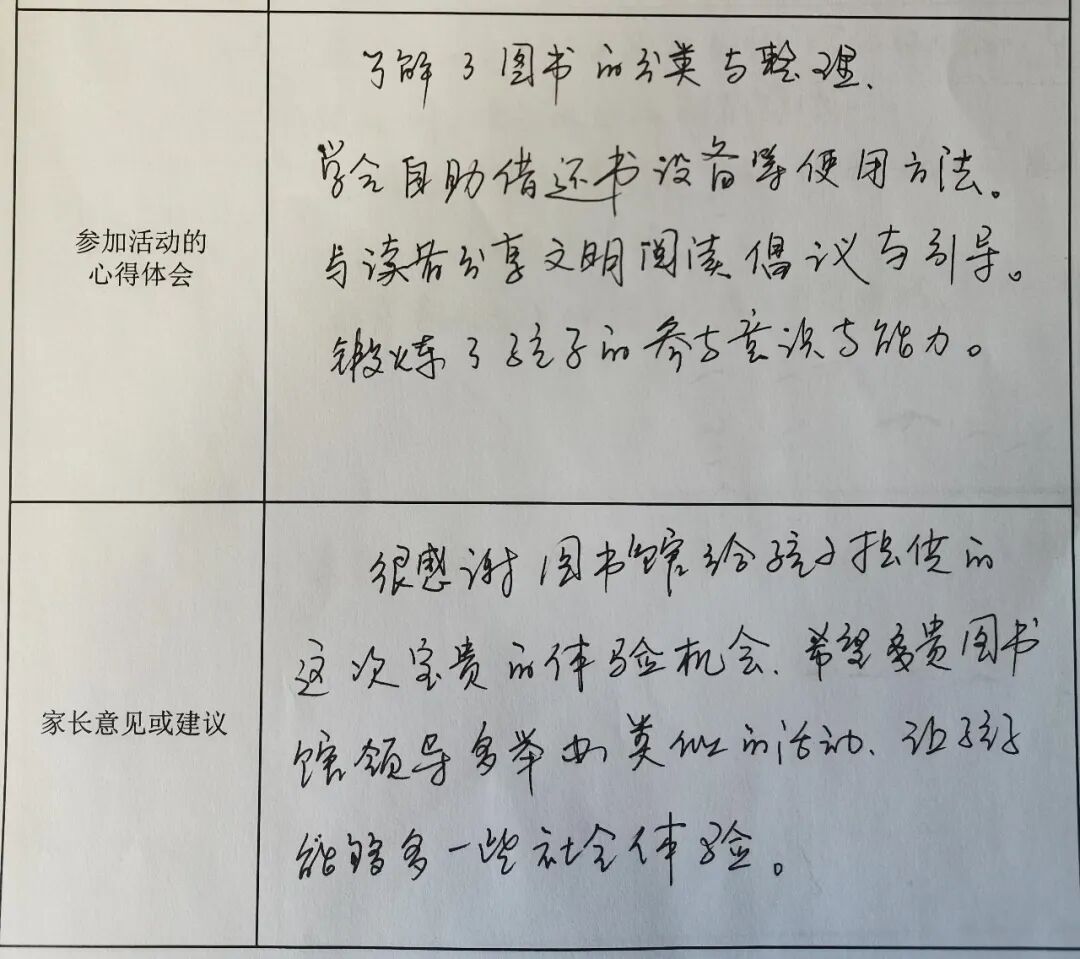 参加活动的
心得体会
了解了图书的分类与整理、
学会自助借还书设备等使用方法。
与读者分享文明阅读倡议与引导。
锻炼了孩子的参与意识与能力。
家长意见或建议
很感谢图书馆给孩子提供的
这次宝贵的体验机会、希望贵图书
馆领导多举办类似的活动、让孩子
能够多一些社会体验。